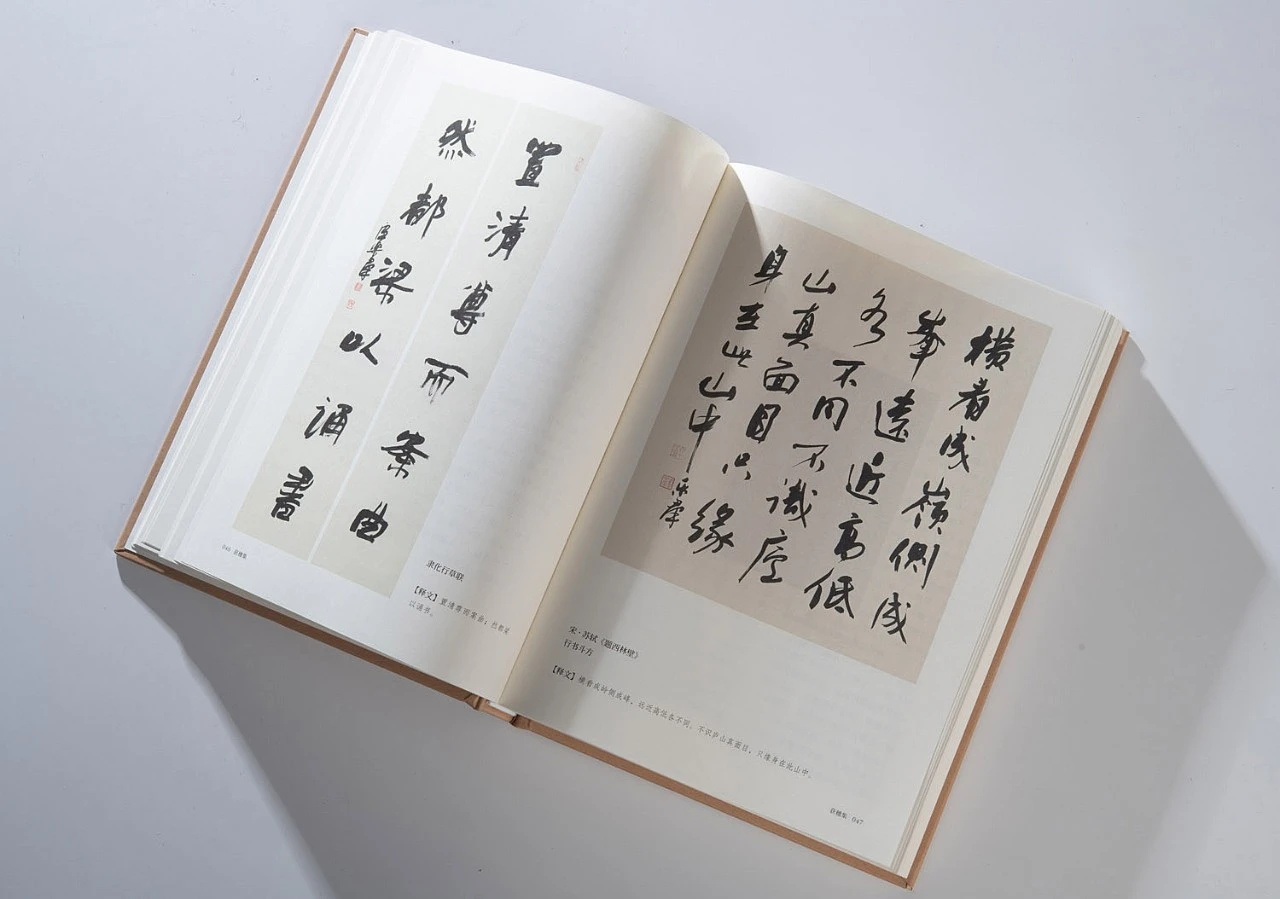 置清尊而案曲
然都梁以誦書
隶化行草联
【释文】置清尊而案曲；然都梁
以诵书。
046
橫看成嶺側成
峯遠近高低
各不同不識廬
山真面目只緣
身在此山中
宋·苏轼《题西林壁》
行书斗方
【释文】横看成岭侧成峰，远近高低各不同。不识庐山真面目，只缘身在此山中。
047